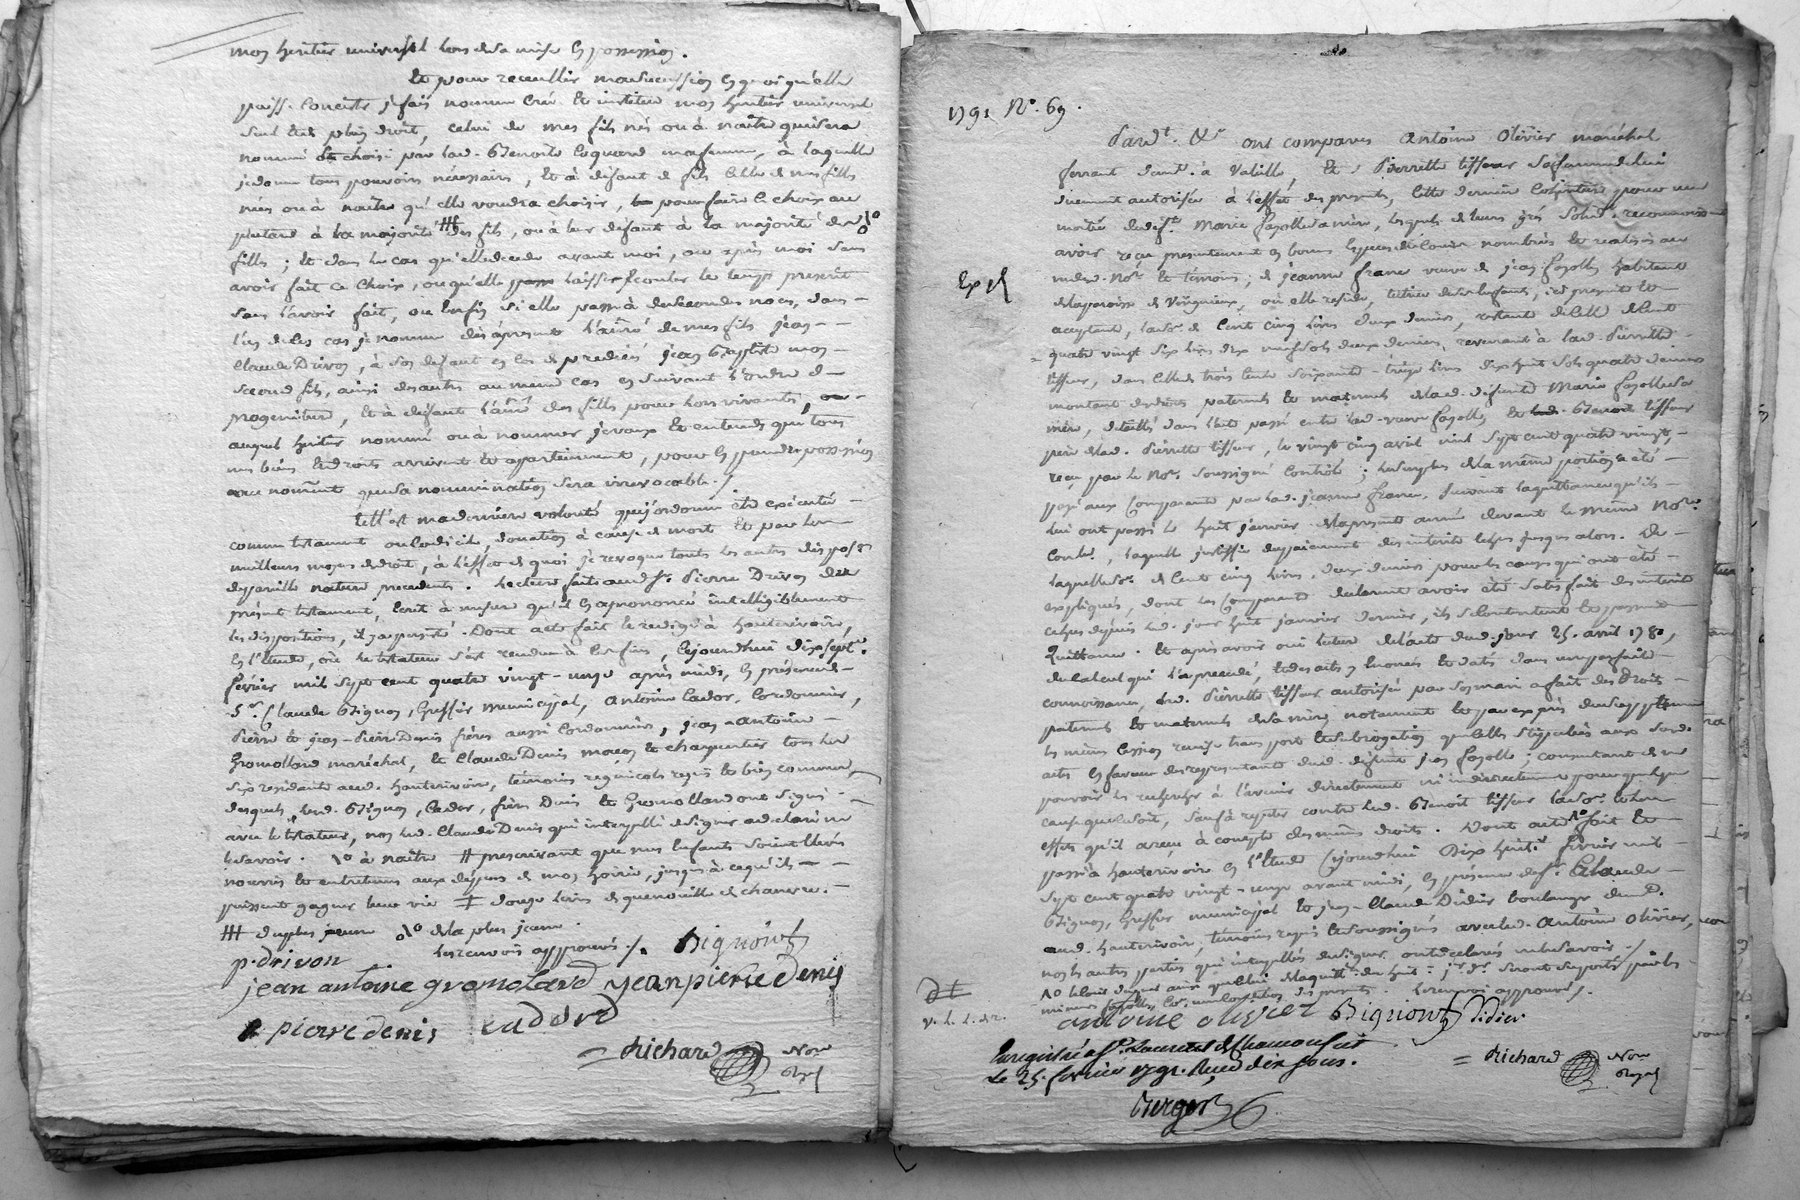 mon heritier universel lors de sa mise en possession.
Et pour recueillir ma succession en quoi qu'elle
puisse consister je fais nomme crée et institue mon heritier universel
seul et de plein droit, celui de mes fils nés ou à naitre qui sera
nommé et choisi par lad. Benoite Coquard ma femme, à laquelle
je donne tous pouvoirs nécessaires, et à défaut de fils celle de mes filles
nées ou à naitre qu'elle voudra choisir, pour faire le choix au
plutard à la majorité # des fils, ou à leur défaut à la majorité des
filles ; et dans le cas qu'elle decede avant moi, ou après moi sans
avoir fait ce choix, ou qu'elle laisse ecouler le temps prescrit
sans l'avoir fait, ou enfin si elle passe à de secondes noces, dans
l'un de ces cas je nomme dès àpresent l'ainé de mes fils jean
Claude Drivon, à son defaut en cas de predécés jean Baptiste mon
second fils, ainsi des autres au meme cas en suivant l'ordre de
progeniture, et à défaut l'ainé des filles pour lors vivantes,
auquel heritier nommé ou à nommer je veux et entends que tous
mes biens et droits arrivent et appartiennent, pour en prendre possession
au moment que sa nomination sera irrevocable./
Telle est ma derniere volonté que j'ordonne être exécutée
comme testament ou codicile, donation à cause de mort et par les
meilleurs moyens de droit, à l'effet de quoi je revoque toutes les autres dispos.ons
de pareille nature precedentes. Lecture faite aud. Sr. Pierre Drivon de
présent testament, ecrit à mesure qu'il en a prononcé intelligiblement
les dispositions, il y a persisté. Dont acte fait et redigé à hauterivoire,
en l'Etude, où le testateur s'est rendu à ces fins, cejourd'hui dix sept.
fevrier mil sept cent quatre vingt-onze après midi, en présence de
Sr. Claude Bignon, Greffier municipal, Antoine Cador, Cordonnier,
Pierre et jean-Pierre Denis frères aussi Cordonniers, jean-Antoine
Gromollard maréchal, et Claude Denis maçon et charpentier tous les
six residants aud. hauterivoire, témoins regnicols requis et bien connus,
desquels, led. Bignon, Cador, frères Denis et Gromollard ont signé
avec le testateur, non led. Claude Denis qui interpellé de signer a declaré ne
le savoir. à naitre # prescrivant que mes enfants soient elevés
nourris et entretenus aux dépens de mon hoirie, jusqu'à ce qu'ils
puissent gagner leur vie ‡ douze livres de quenouille de chanvre.
# du plus jeune de la plus jeune.
les renvois approuvés./. Bignon
p. drivon
jean antoine gromolard jean pierre denis
pierre denis cadord
= Richard Nore
Royal
1791 N°. 69.
Pardt. &c ont comparus Antoine Olivier maréchal
ferrant demt. à Valeille, et Pierrette tisseur sa femme de lui
duement autorisée à l'effet des presentes, cette derniere coheritiere pour une
moitié de deft. Marie fayolle sa mère, lesquels de leurs grés solidt. reconnoissent
avoir reçu presentement en bonnes especes de cours nombrées et realisées au
vu desd. Nore. et témoins ; de jeanne franc veuve de jean fayolle, habitant
de la paroisse de Virigneux, où elle reside, tutrice de ses enfants, ici presente et
acceptant, la so. de cent cinq livres deux deniers, restant de celle de cent
quatre vingt six livres dix neuf sols deux deniers, revenant à lad. Pierrette
tisseur, dans celle de trois cents soixante-treize livres dix huit sols quatre deniers
montant des droits paternels et maternels de lad. defunte Marie fayolle sa
mère, detaillés dans l'acte passé entre lad. veuve fayolle, et led. Benoit tisseur
père de lad. Pierrette tisseur, le vingt cinq avril mil sept cent quatre vingt,
reçu par le Nore. soussigné controlé ; le surplus de la même portion a été
payé aux comparants par lad. jeanne franc, suivant la quittance qu'ils
lui ont passé le huit janvier de la presente année devant le même Nore.
Contlé., laquelle justifie du paiement des interets echus jusques alors. De
laquelle so. de cent cinq livres, deux deniers pour les causes qui ont été
expliquées, dont les comparants declarent avoir été satisfait des interets
echus depuis led. jour huit janvier dernier, ils se contentent et passent
Quittance. Et après avoir oui lecture de l'acte dud. jour 25. avril 1780,
du calcul qui l'a precedé, et des actes y énoncés et datés dans un parfait
connoissance, lad. Pierrette tisseur autorisée par son mari a fait des droits
paternels et maternels de sa mère, notament et par exprès de supplement
les mêmes cession remise transport et subrogation qu'elles stipulées aux susd.
actes en faveur des representants dud. défunt jean fayolle ; consentant de ne
pouvoir les rechercher à l'avenir directement ni indirectement pour quelque
cause que ce soit, sauf à repeter contre led. Benoit tisseur la so.
effets qu'il a reçu à compte des mêmes droits. Dont acte fait et
passé à hauterivoire en l'Etude Cejourd'hui Dix huit. fevrier mil
sept cent quatre vingt-onze avant midi, en présence de Sr. Claude
Bignon, Greffier municipal et jean-Claude Didier boulanger demt.
aud. hauterivoire, témoins requis et soussignés avec led. Antoine Olivier,
non les autres parties qui interpellées de signer, ont declaré ne le savoir./
les renvoi approuvé/.
antoine olivier Bignon Didier
Enregistré a St. Laurent de Chamousset
Le 25. fevrier 1791. Reçu dix sous.
Berger
= Richard Nore
Royal